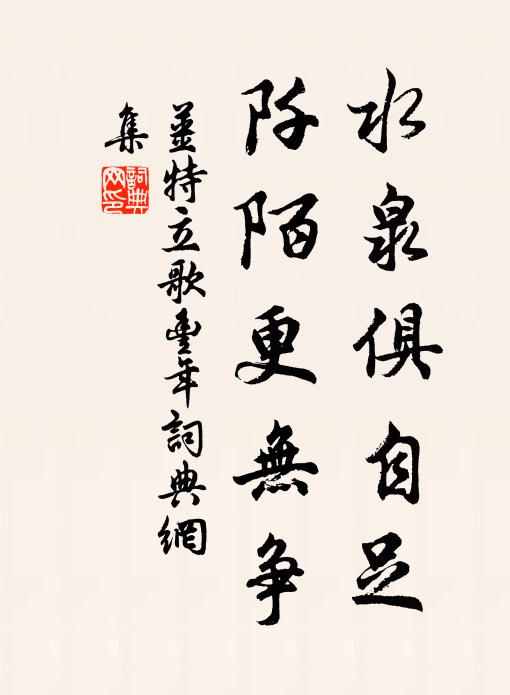 水泉俱自足
阡陌更無爭
薑特立歌豐年詞典網
集
詞典网印